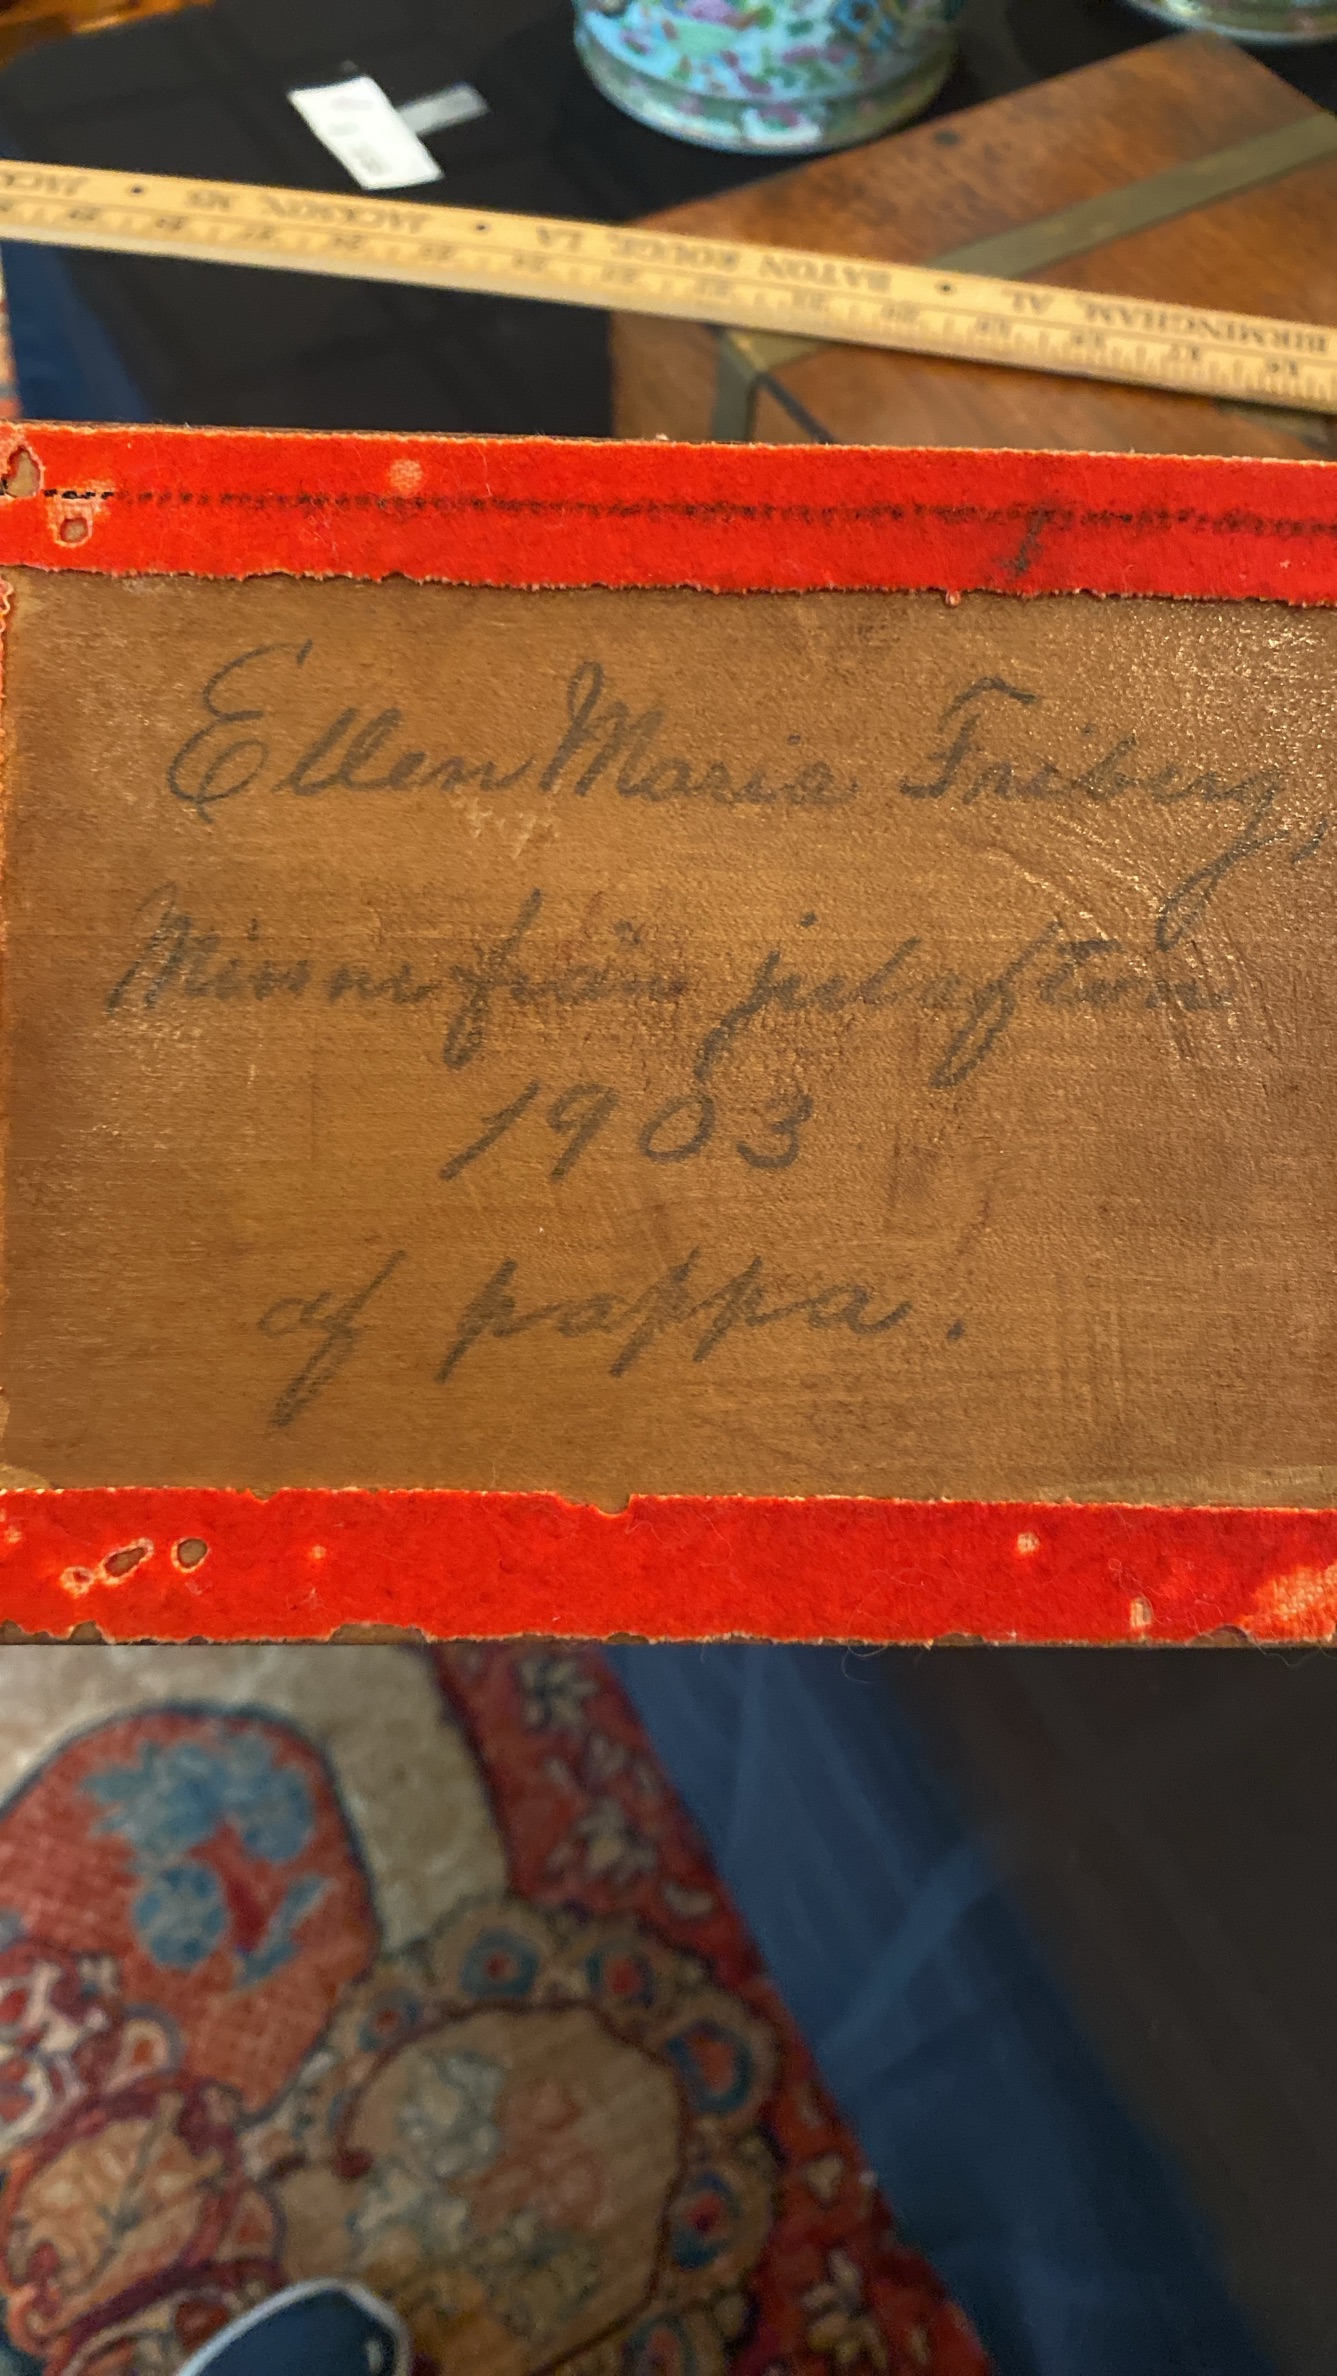 JACKSON, MS • JACKSON, MS • BATON ROUGE, LA • BIRMINGHAM, AL BIRMINGHAM
Ellen Maria Friberg,
Minne från julafton
1903
af pappa.